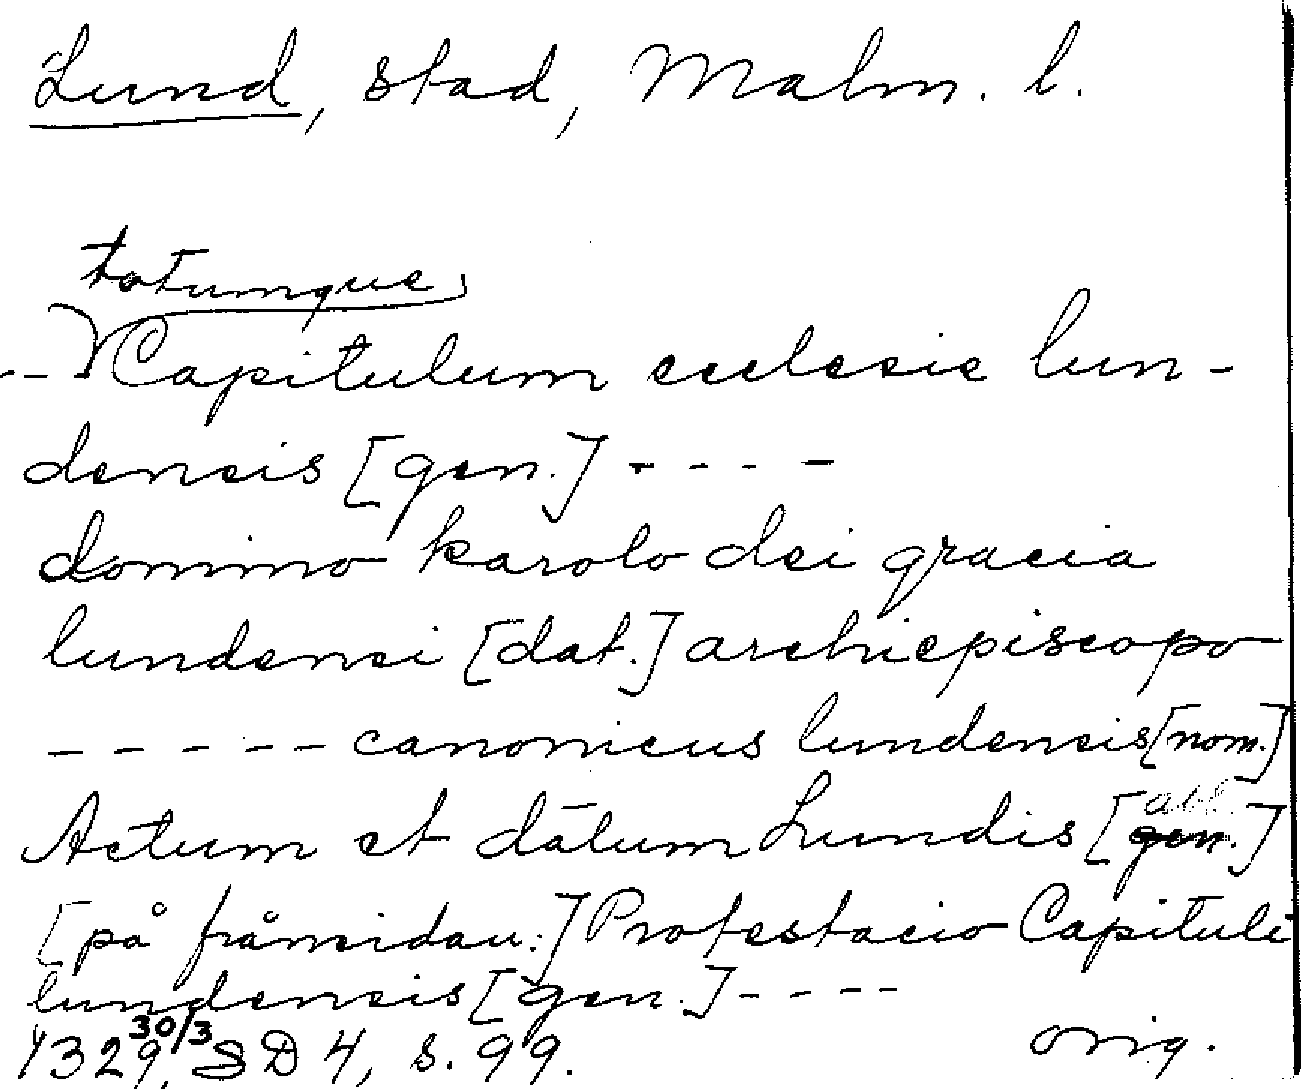 Lund, stad, Malm. l.
totumque
--- Capitulum ecclesie lun-
densis [gen.] ----
domino karolo dei gracia
lundensi [dat.] archiepiscopo
----- canonicus lundensis [nom.]
Actum et dātum Lundis [abl.]
[på frånsidan:] Protestacio Capituli
lundensis [gen.] ----
1329 30/3, SD 4, s. 99. orig.